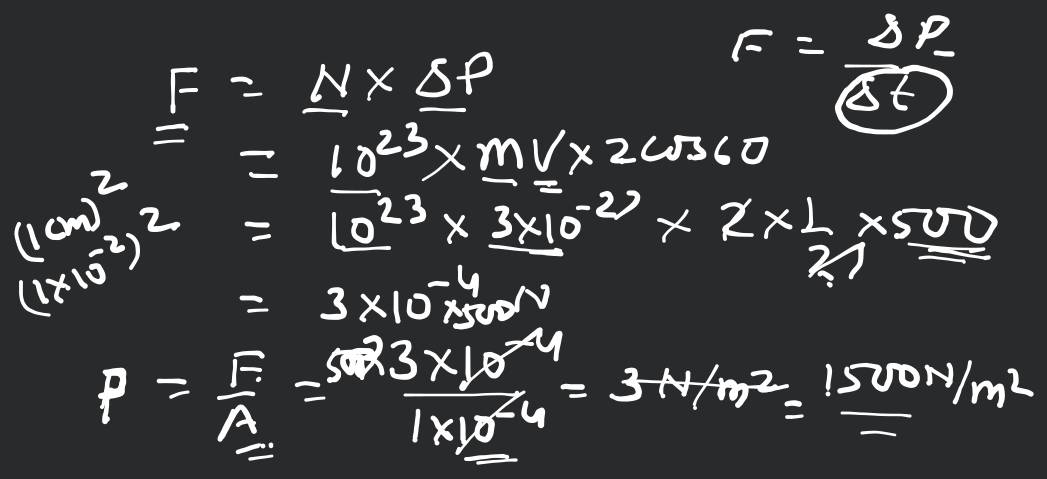 F = ΔP / Δt
F = N × ΔP
= 10^23 × mV × 2 cos60
(1cm)^2
= 10^23 × 3×10^-27 × 2 × 1/2 × 500
(1×10^-2)^2
= 3×10^-4 ×500N
P = F/A = 3×10^-4 / 1×10^-4 = 3 N/m2 = 1500N/m2